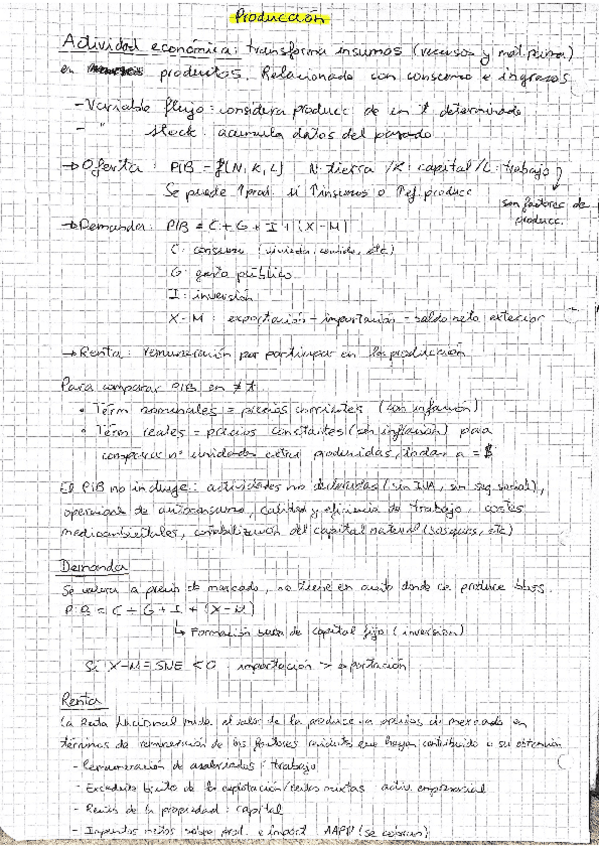 Producción
Actividad económica: transforma insumos (recursos y mat. prima)
en productos. Relacionado con consumo e ingresos
- Variable flujo: considera producc. de un t determinado
- " stock: acumula datos del pasado
→ Oferta: PIB = f(N, K, L) N: tierra / K: capital / L: trabajo
Se puede ↑prod. si ↑insumos o ↑ef. producc
son factores de
producc.
→ Demanda: PIB = C + G + I + (X-M)
C: consumo (vivienda, comida, etc)
G: gasto público
I: inversión
X-M: exportación - importación = saldo neto exterior
→ Renta: remuneración por participar en la producción
Para comparar PIB en ≠ t.
• Térm nominales = precios corrientes (con inflación)
• Térm reales = precios constantes (sin inflación) para
comparar nº unidades extra producidas, a = $
El PIB no incluye: actividades no declaradas (sin IVA, sin seg. social),
operaciones de autoconsumo, calidad y eficiencia de trabajo, costes
medioambientales, contabilización del capital natural (bosques, etc)
Demanda
Se valora a precio de mercado, no tiene en cuenta donde se produce bbss.
PIB = C + G + I + (X-M)
↳ Formación bruta de capital fijo (inversión)
Si X-M = SNE < 0 importación > exportación
Renta
La Renta Nacional mide el valor de la producc. a precios de mercado en
términos de remuneración de los factores residentes que hayan contribuido a su obtención
- Remuneración de asalariados: trabajo
- Excedente bruto de la explotación/rentas mixtas activ. empresarial
- Rentas de la propiedad: capital
- Impuestos netos sobre prod. e import. AAPP (se cobran)